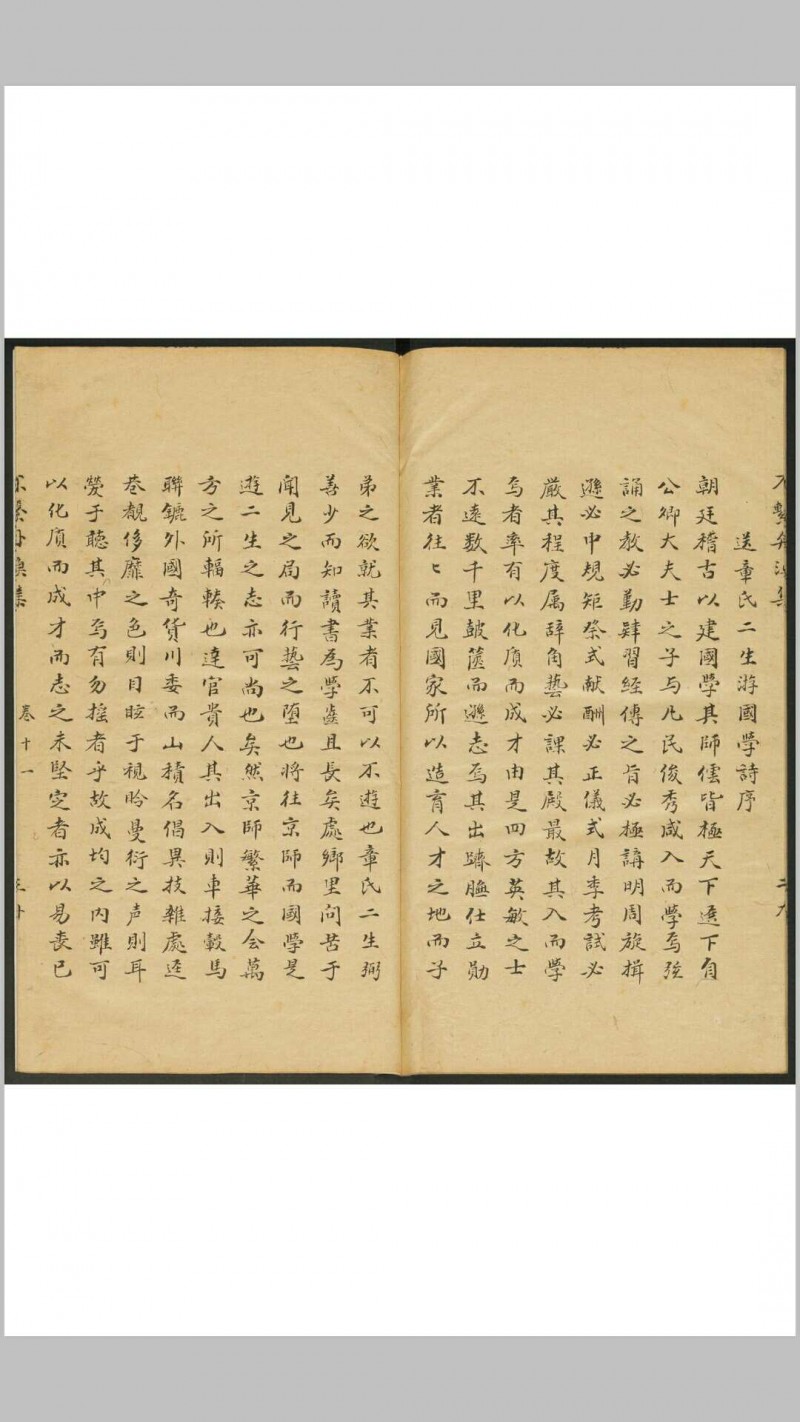 送章氏二生游國學詩序
朝廷稽古以建國學其師儒皆極天下選下自
公卿大夫士之子与凡民俊秀咸入而學焉弦
誦之教必勤肄習經傳之旨必極講明周旋揖
遜必中規矩祭式献酬必正儀式月季考試必
嚴其程度属辞角藝必課其殿最故其入而學
焉者率有以化质而成才由是四方英敏之士
不遠数千里皷箧而遜志焉其出躋膴仕立勛
業者往々而見國家所以造育人才之地而子
弟之欲就其業者不可以不遊也章氏二生弼
善少而知讀書為學齒且長矣處鄉里問苦于
聞見之局而行藝之堕也將往京師而國學是
遊二生之志亦可尚也矣然京師繁華之会萬
方之所輻輳也達官貴人其出入則車接轂馬
聯鑣外國奇貨川委而山積名倡異技雜處逵
巷靓侈靡之色則目眩于視吟曼衍之声則耳
熒于聽其中焉有勿摇者乎故成均之内雖可
以化质而成才而志之未堅定者亦以易喪已
卷十一